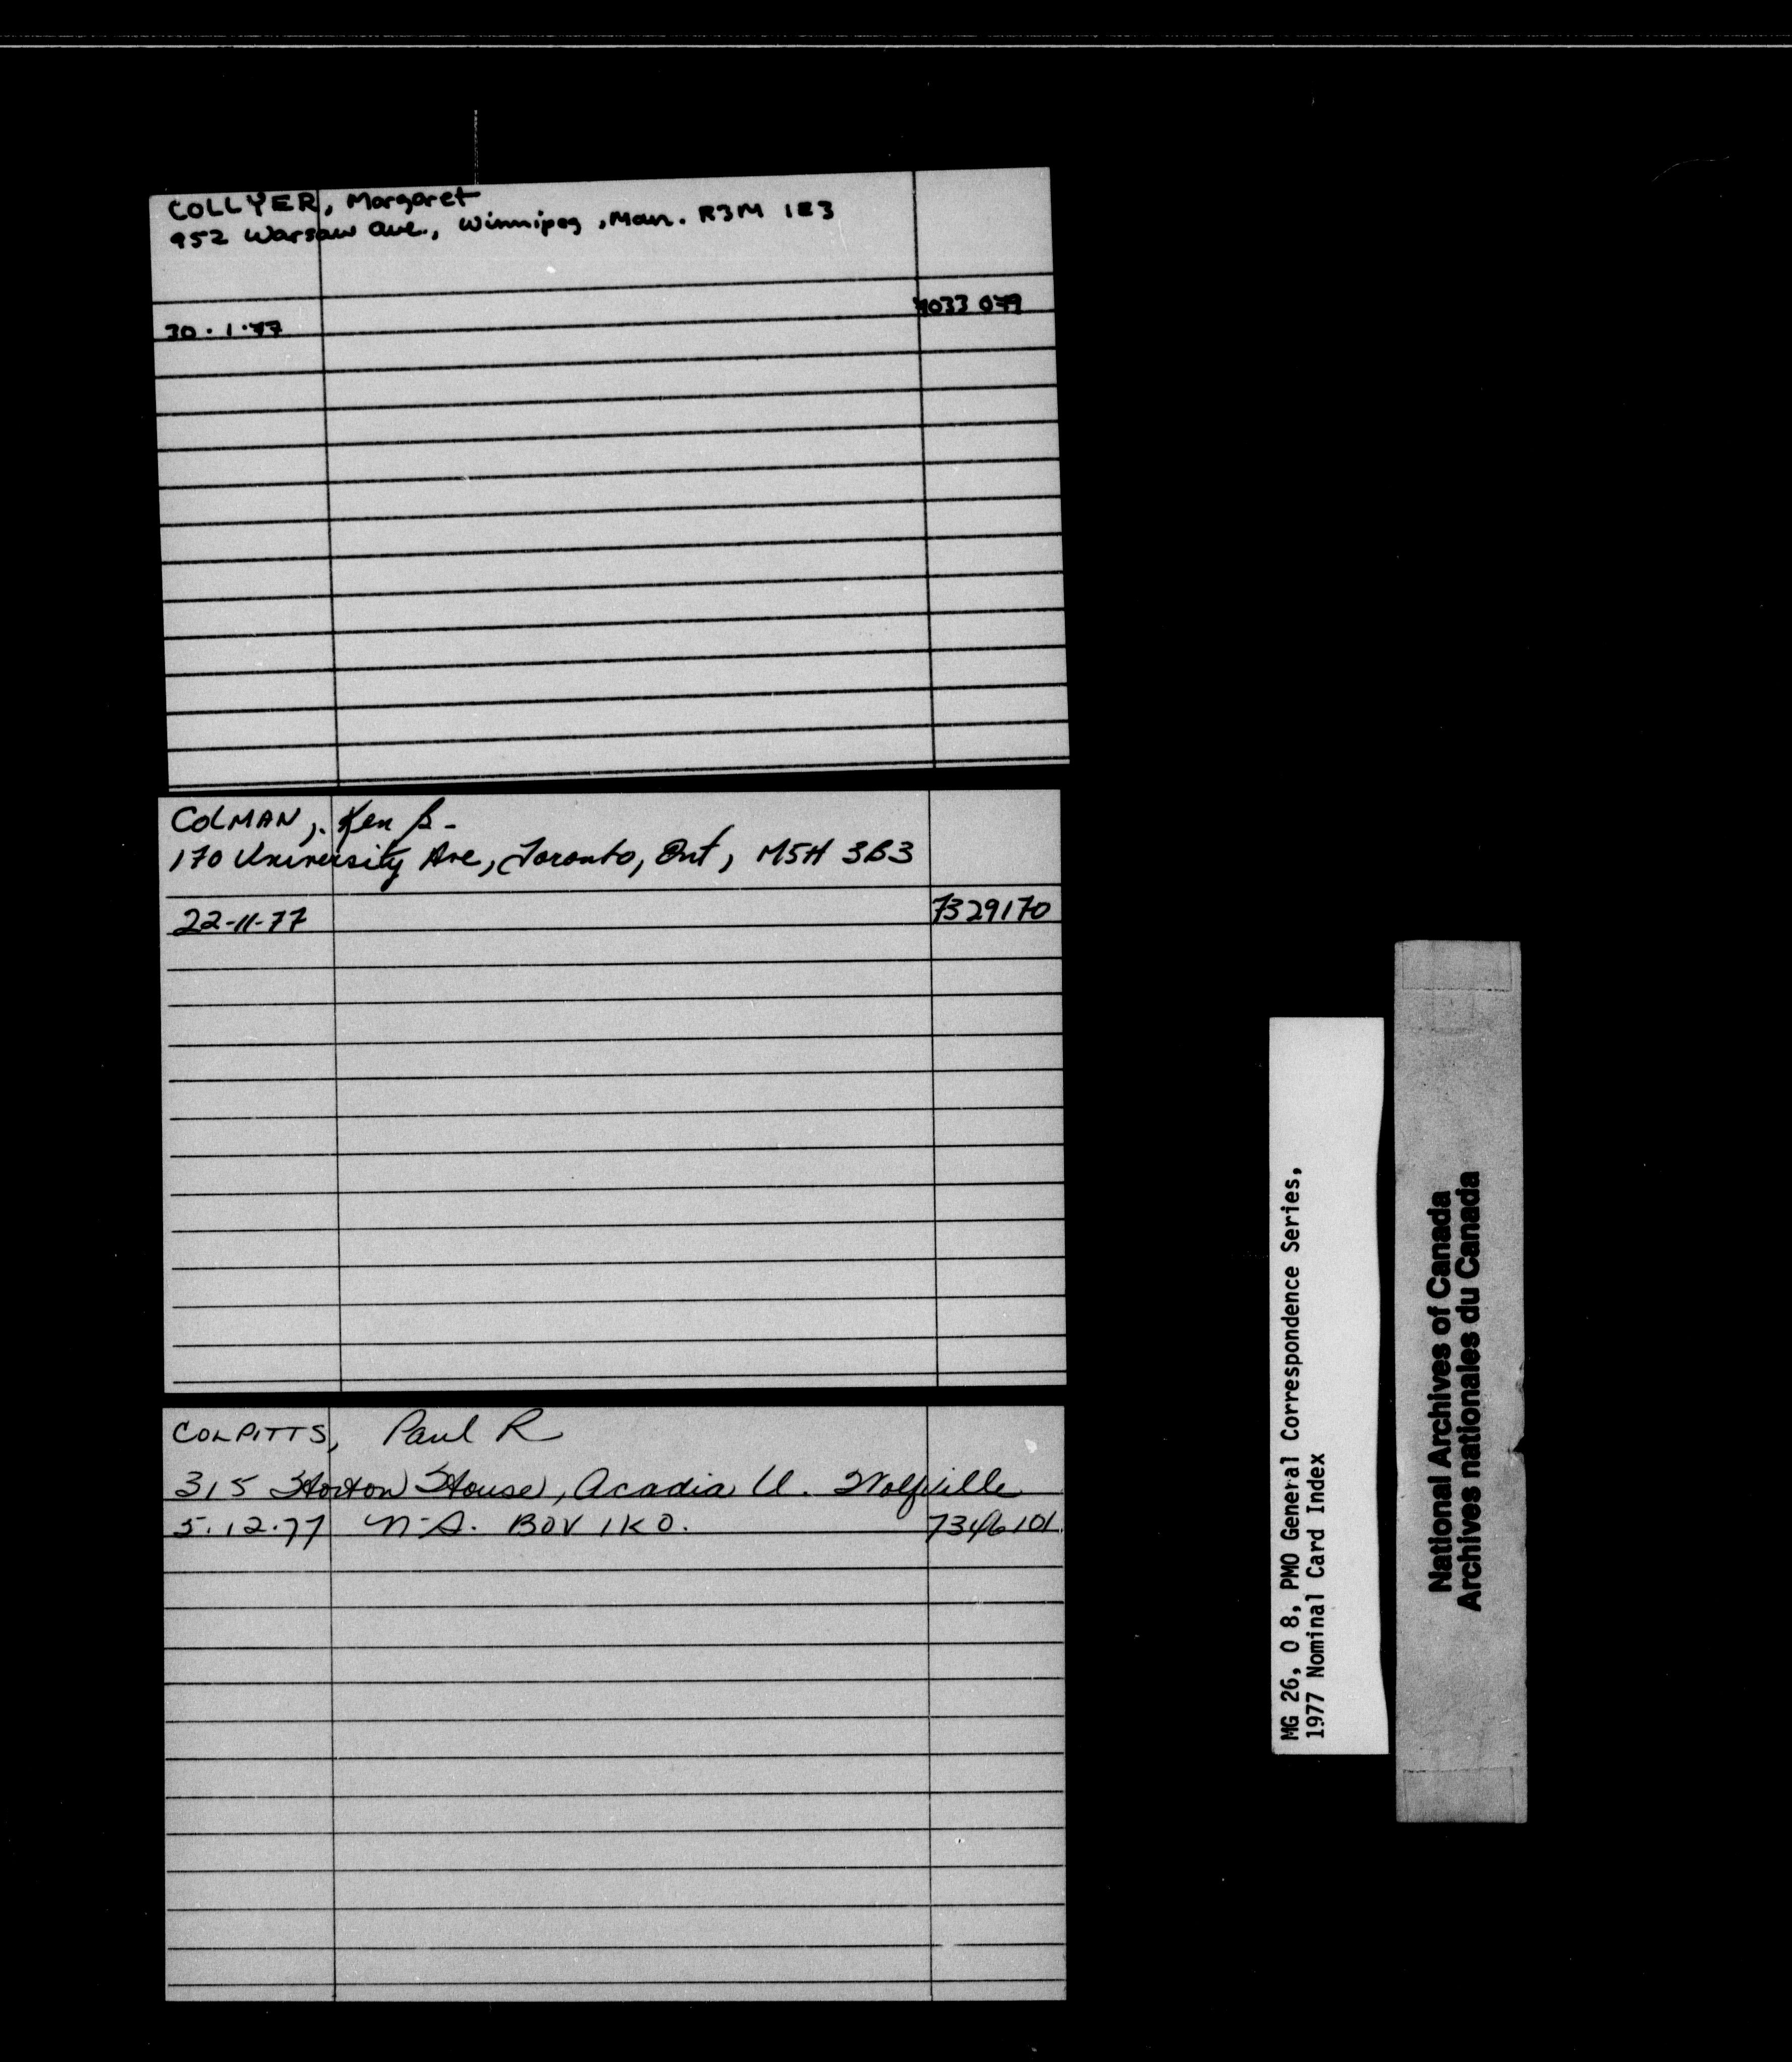 COLLYER, Margaret
952 Warsaw Ave., Winnipeg, Man. R3M 1E3
30.1.77 7033 079
COLMAN, Ken B.
170 University Ave, Toronto, Ont, M5H 3B3
22-11-77 7329170
COLPITTS, Paul R
315 Horton House, Acadia U. Wolfville
5.12.77 N.S. BOV 1KO. 7346101
MG 26, O 8, PMO General Correspondence Series,
1977 Nominal Card Index
National Archives of Canada
Archives nationales du Canada